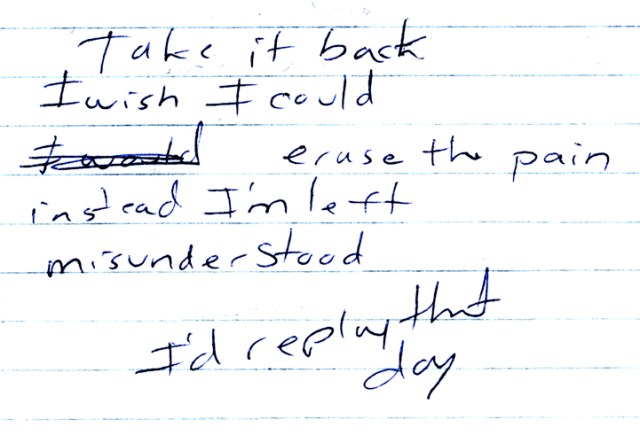 Take it back
I wish I could
erase the pain
instead I'm left
misunderstood
I'd replay that
day